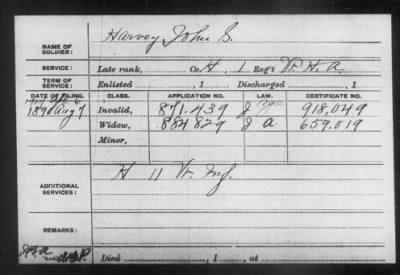 NAME OF SOLDIER: Harvey, John S.
SERVICE: Late rank, Co H, 1 Reg't Vt. H. A.
TERM OF SERVICE: Enlisted , 1 Discharged , 1
DATE OF FILING. CLASS. APPLICATION NO. LAW. CERTIFICATE NO.
Invalid, 871.439 918,049
1890 Aug 7 Widow, 884829 J a 659.019
Minor,
ADDITIONAL SERVICES: H 11 Vt. Inf.
REMARKS:
Died , 1 , at